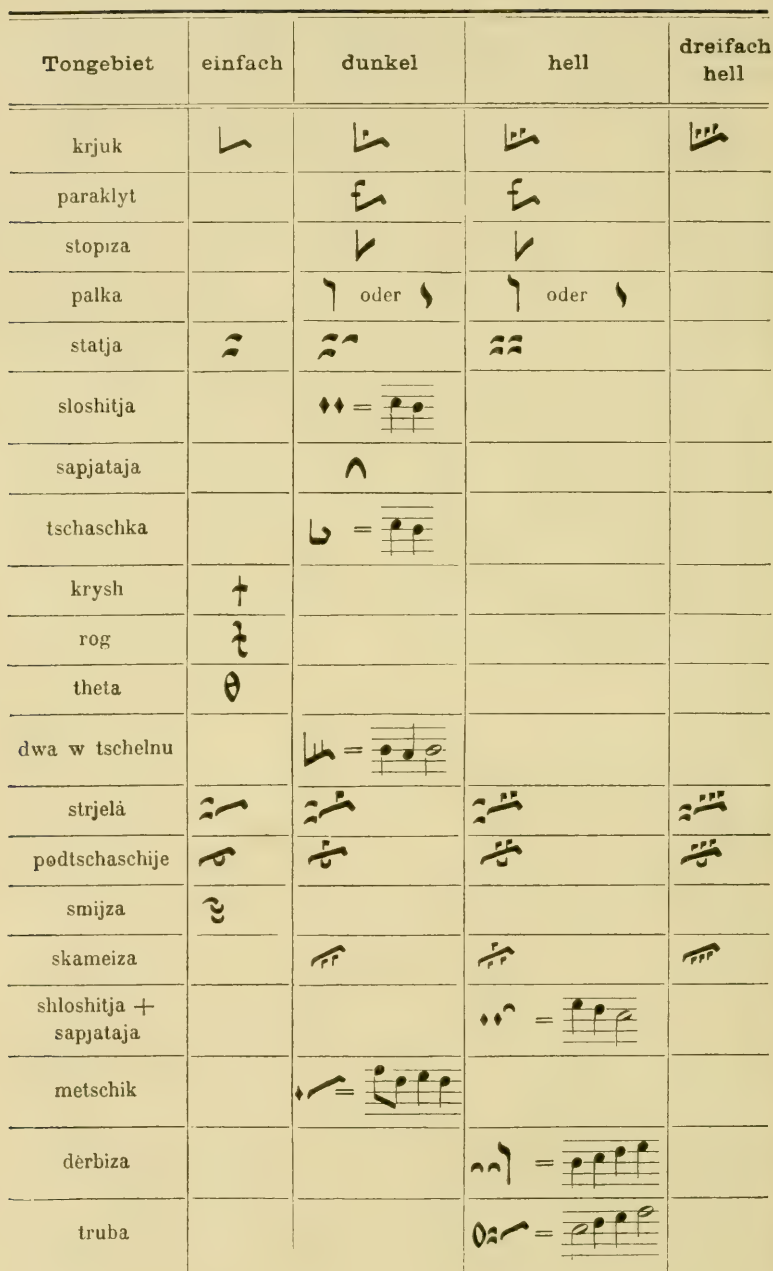 Tongebiet einfach dunkel hell dreifach hell
krjuk
paraklyt
stopıza
palka oder oder
statja
sloshitja =
sapjataja
tschaschka =
krysh
rog
theta
dwa w tschelnu =
strjelà
pødtschaschije
smijza
skameiza
shloshitja +
sapjataja =
metschik =
dèrbiza =
truba =